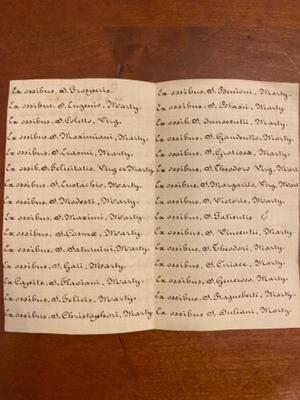 Ex ossibus, S. Prosperis.
Ex ossibus, S. Eugenio, Marty.
Ex ossibus, S. Coletto, Virg.
Ex ossibus, S. Maximiani, Marty.
Ex ossibus, S. Erasmi, Marty.
Ex ossib. S. Felicitatis, Virg et Marty
Ex ossibus, S. Eustachio, Marty.
Ex ossibus, S. Modesti, Marty.
Ex ossibus, S. Maximi, Marty.
Ex ossibus, S. Cosmæ, Marty.
Ex ossibus, S. Saturnini, Marty.
Ex ossibus, S. Gali, Marty.
Ex Capite, S. Flaviani, Marty.
Ex ossibus, S. Felicis, Marty.
Ex ossibus, S. Christophori, Marty.
Ex ossibus, S. Benioni, Marty.
Ex ossibus, S. Blasii, Marty.
Ex ossib. S. Innocentii, Marty.
Ex ossibus, S. Gaudentto, Marty.
Ex ossibus, S. Gratiosæ, Marty.
Ex ossibus, S. Theodoro Virg, Mart
Ex ossibus, S. Margarito, Virg, Mart
Ex ossibus, S. Victoris, Marty.
Ex ossibus, S. Patientis
Ex ossibus, S. Vincentii, Marty.
Ex ossibus, S. Theodori, Marty.
Ex ossibus, S. Ciriaci, Marty.
Ex ossibus, S. Generoso, Marty.
Ex ossibus, S. Fragueberti, Marty.
Ex ossibus, S. Juliani, Marty.